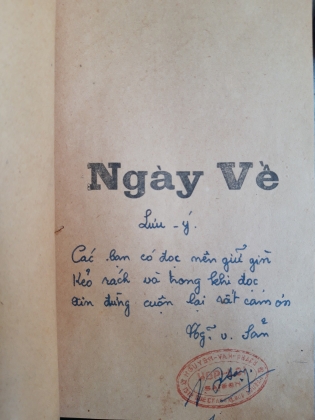 Ngày Về
Lưu - ý.
Các bạn có đọc nên giữ gìn
Kẻo rách và trong khi đọc
xin đừng cuộn lại rất cám ơn
Ng. v. San